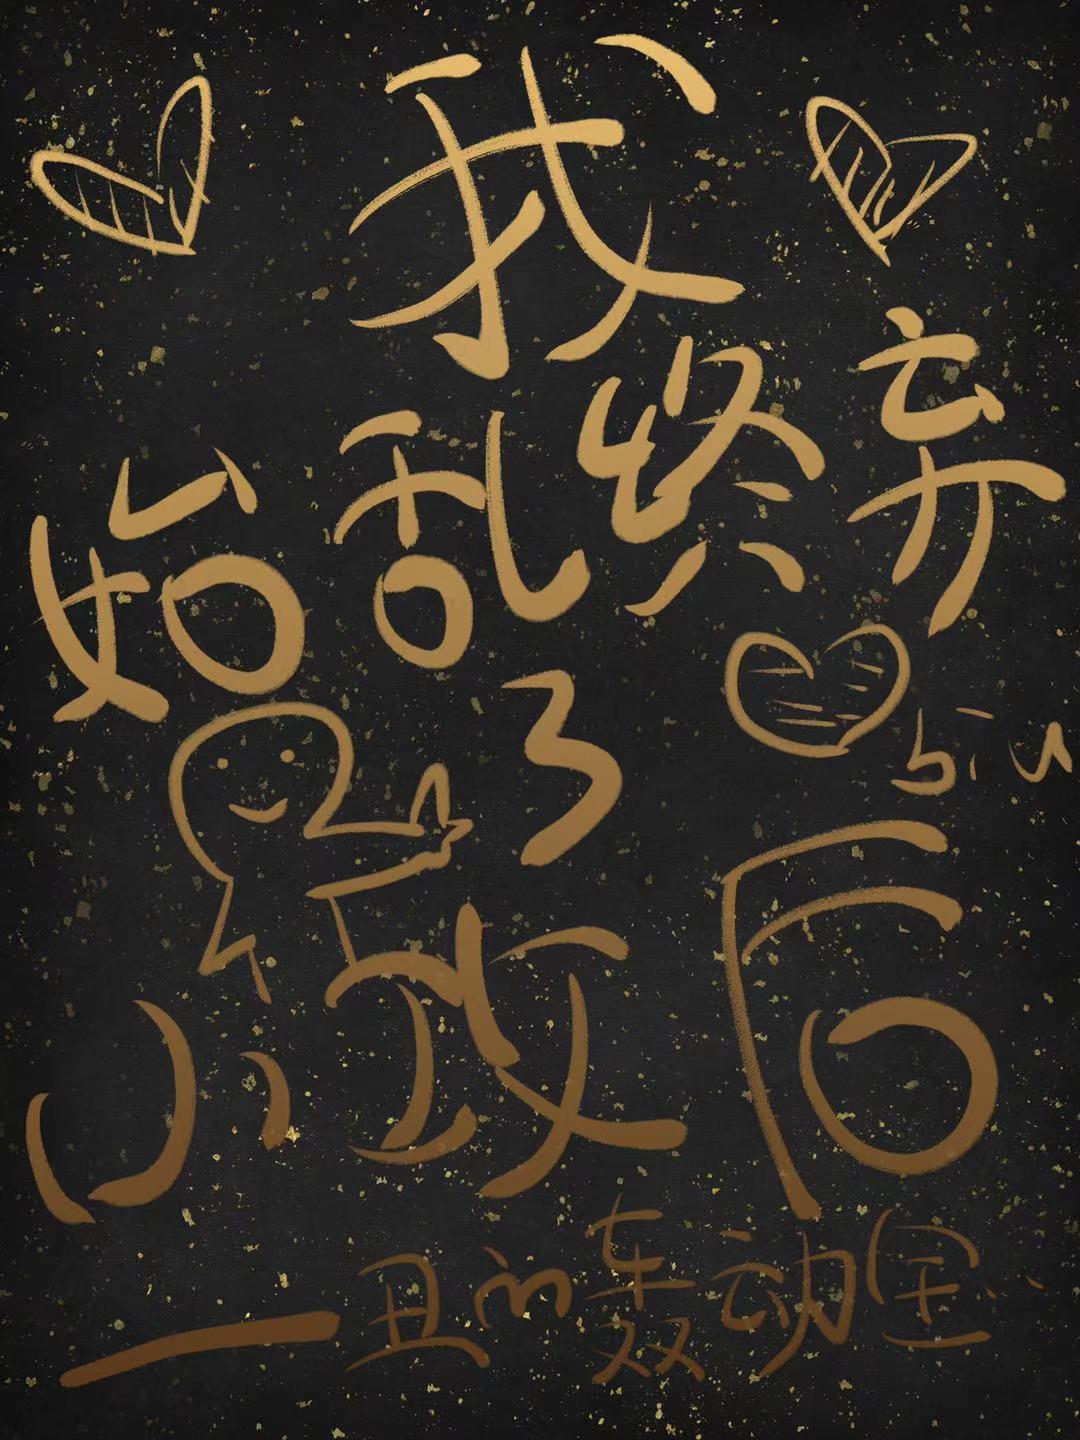 我
始乱终弃
了
biu
小玫后
一丑的轰动全